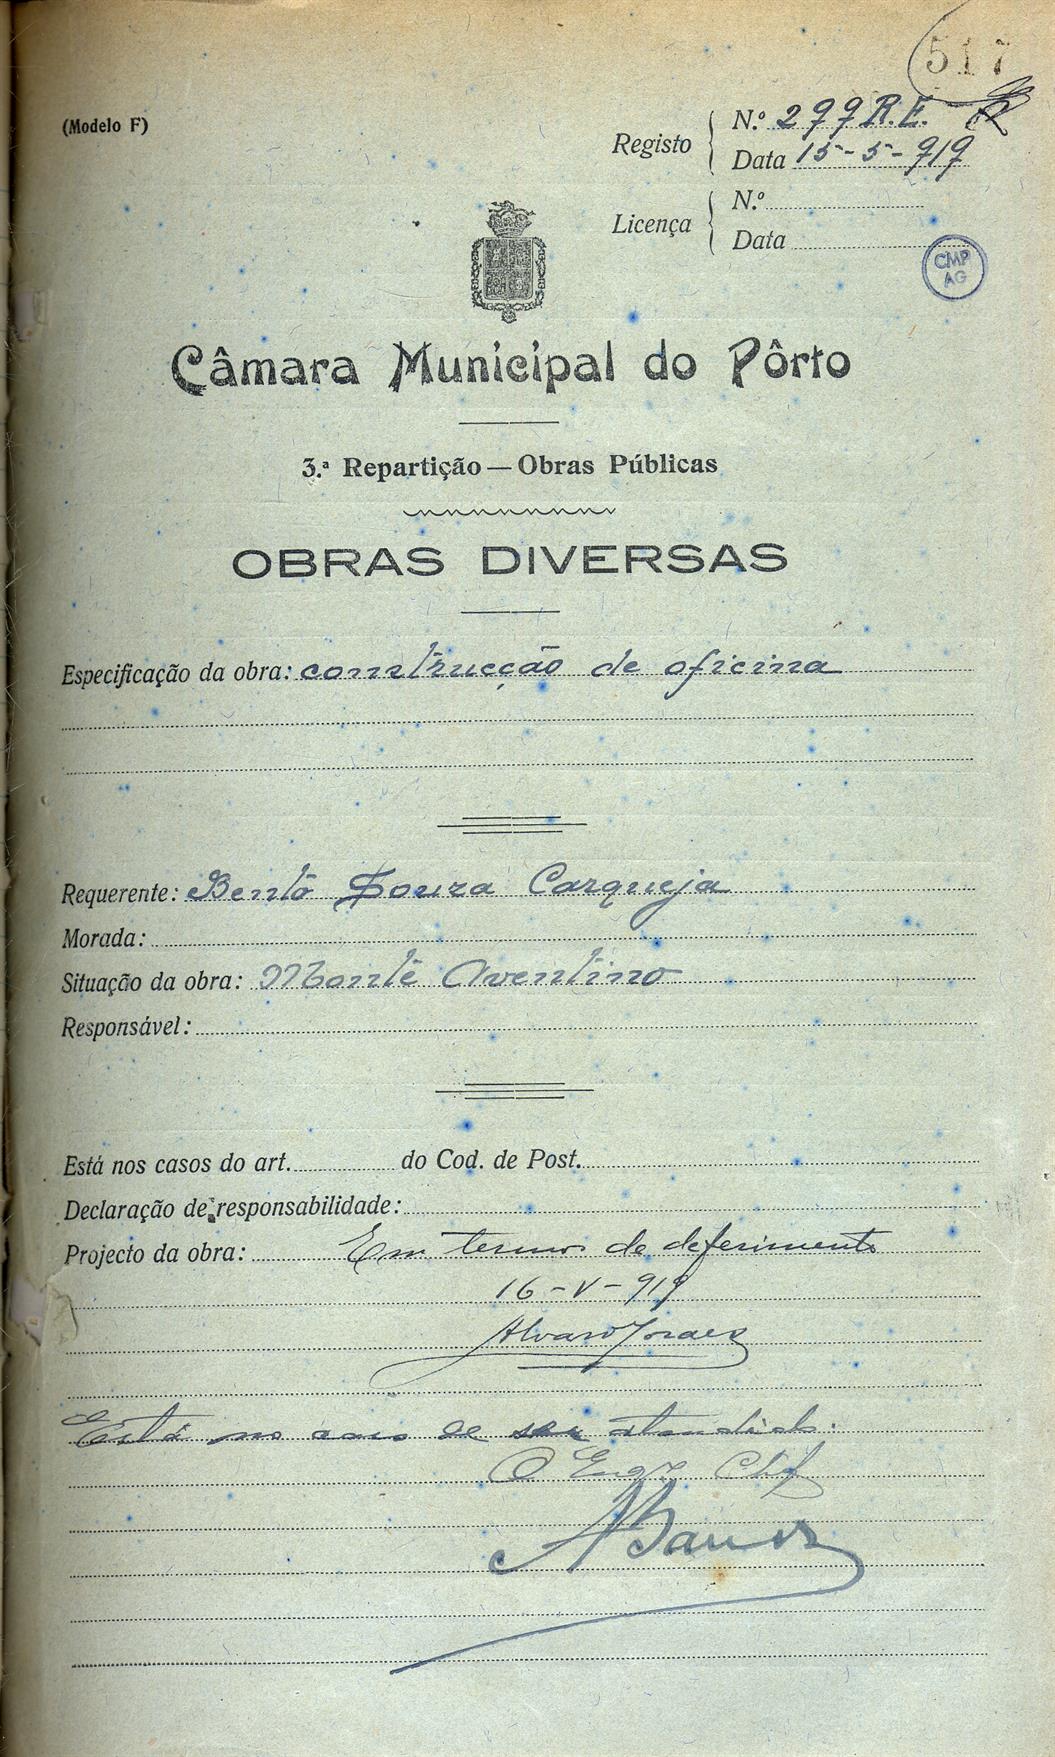 517
(Modelo F)
Registo
N.º 277 R. E.
Data 15-5-919
Licença
N.º
Data
CMP
AG
Câmara Municipal do Pôrto
3.ª Repartição — Obras Públicas
OBRAS DIVERSAS
Especificação da obra: construcção de oficina
Requerente: Bento Souza Carqueja
Morada:
Situação da obra: Monte Aventino
Responsável:
Está nos casos do art. do Cod. de Post.
Declaração de responsabilidade:
Projecto da obra: Em termos de deferimento
16-V-919
Alvaro Moraes
Está no caso de ser atendido.
O Engr. Chf